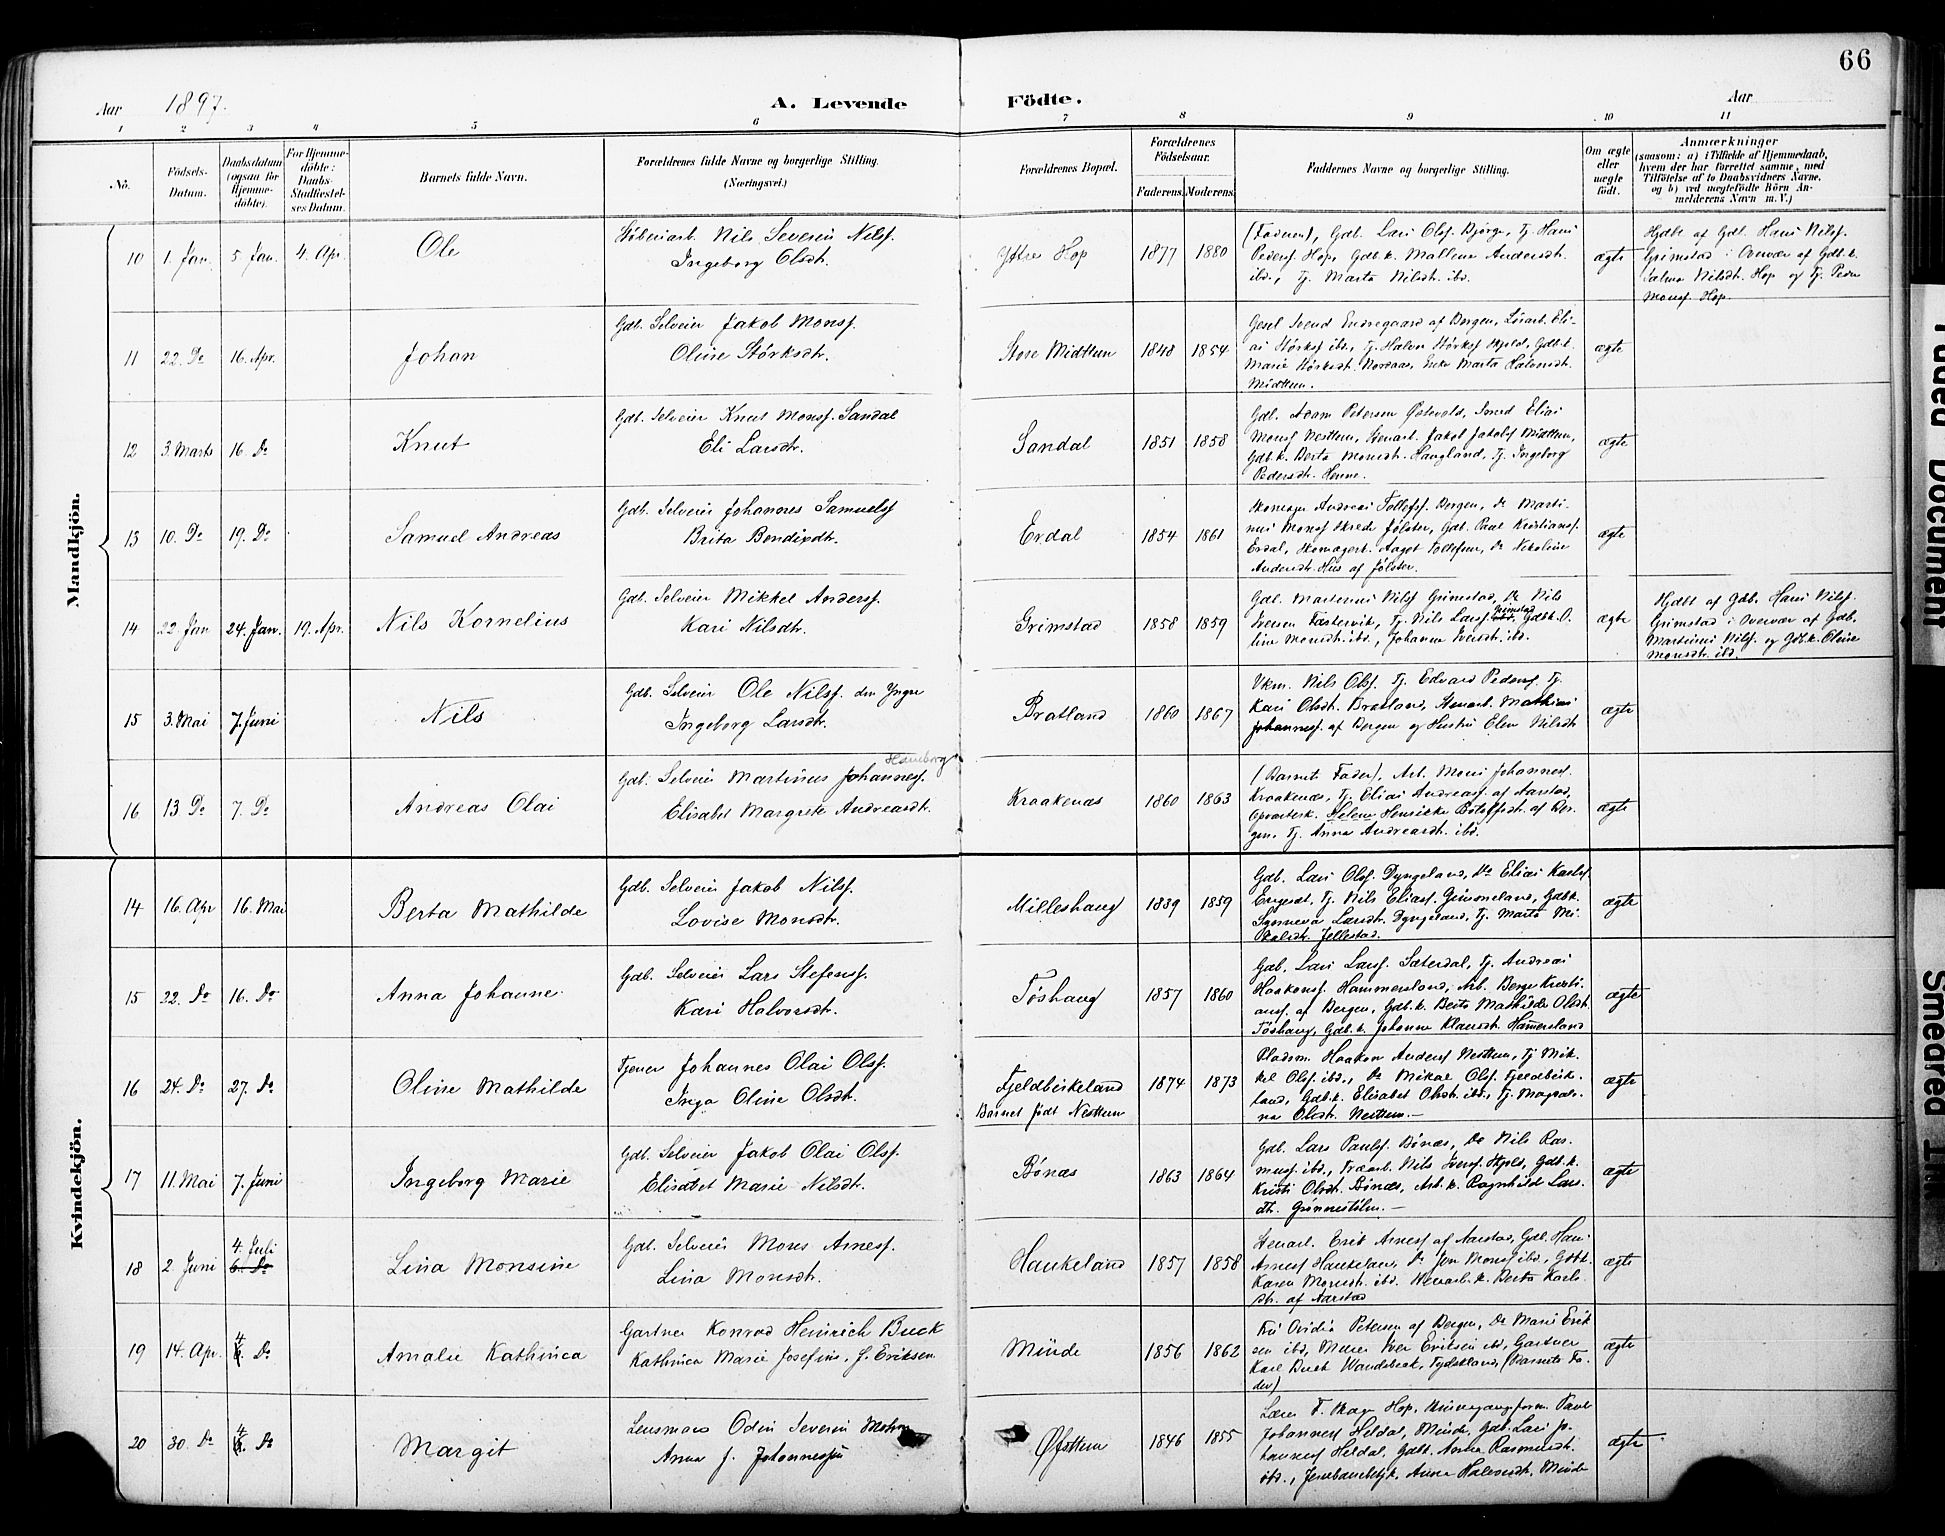 66
Aar 1897. A. Levende Födte. Aar
1 2 3 4 5 6 7 8 9 10 11
No.
Födsels-Datum.
Daabsdatum (ogsaa för Hjemme-döbte).
For Hjemme-döbte: Daabs-Stadfæstel-ses Datum.
Barnets fulde Navn.
Forældrenes fulde Navne og borgerlige Stilling. (Næringsvei.)
Forældrenes Bopæl.
Forældrenes Födselsaar.
Faderens. Moderens.
Faddernes Navne og borgerlige Stilling.
Om ægte eller uægte født.
Anmærkninger
(saasom: a) i Tilfælde af Hjemmedaab, hvem der har forrettet samme, med Tilföielse af to Daabsvidners Navne, og b) ved uægtefödte Börn An-melderens Navn m. V.)
Mandkjön.
10 1. Jan. 5 Jan. 4. Apr. Ole
Nils Severin Nilsf.
Ingeborg Olsdt.
Ytre Hop 1877 1880
(Faderen), Gdb. Lars Olsf. Bjørge, Tj. Hans
Pedersf. Hop, Gdbk. Mallene Andersdt.
ibd., Tj. Marta Nilsdt. ibd.
ægte
Hjdbt af Gdb. Hans Nilsf.
Grimstad i Overvær af Gdb.k.
Nilsdt. Hop og Tj. Peder
Monsf. Hop.
11 22. Do 16. Apr. Johan
Gdb. Selveier Jakob Monsf.
Oline Størksdt.
Store Midttun 1848 1854
Gesel Svend Endregaard af Bergen, Eli-
as Størksf ibd., Tj. Halvor Størksf Hjeld, Gdb.k.
Marie Størksdt. Nordaas, Enke Marta Halvorsdt.
Midttun.
ægte
12 3. Marts 16. Do Knut
Gdb. Selveier Knut Monsf. Sandal
Eli Larsdt.
Sandal 1851 1858
Gdb. Adam Petersen Østvold, Smed Elias
Monsf Nesttun, Stenarb. Jakob Jakobsf Midttun,
Gdb.k. Berta Monsdt. Haugland, Tj. Ingeborg
Pedersdt.
ægte
13 10. Do 19. Do Samuel Andreas
Gdb. Selveier Johannes Samuelsf
Brita Bendixdt.
Erdal 1854 1861
Skomager Andreas Tollefsf. Bergen, Do Marti-
nus Monsf Skrede Jølster, Gdb. Peal Kristiansf.
Erdal, Skomagerk. Aagot Tollefsen, Do Nikoline
Andersdt. Hus af Jølster.
ægte
14 22. Jan 24. Jan. 19. Apr. Nils Kornelius
Gdb. Selveier Mikkel Andersf.
Kari Nilsdt.
Grimstad 1858 1859
Gdb. Martinus Nilsf Grimstad, Do Nils
Iversen Fastervik, Tj. Nils Larsf. Grimstad, Gdbk. O-
line Monsdt. ibd., Johanna Iversdt. ibd.
ægte
Hjdbt af Gdb. Hans Nilsf.
Grimstad i Overvær af Gdb.
Martinus Nilsf. og Gdb.k. Oline
Monsdt. ibd.
15 3. Mai 7. Juni Nils
Gdb. Selveier Ole Nilsf. den Yngre
Ingeborg Larsdt.
Bratland 1860 1867
Ukm. Nils Olsf. Tj. Edvard Pedersf. Tj.
Kari Olsdt. Bratland, Stenarb. Mathias
Johannesf. af Bergen og Hustru Elen Nilsdt
ægte
16 13 Do 7. Do Andreas Olai
Hamborg
Gdb. Selveier Martinus Johannesf.
Elisabet Margrete Andreasdt.
Kraakenæs 1860 1863
(Barnets Fader), Arb. Mons Johannesf.
Kraakenæs, Tj. Elias Andreasf. af Aarstad,
Opvarterk. Helene Henrikke Botolfsdt. af Ber-
gen, Tj. Anna Andreasdt. ibd.
ægte
Kvindekjön.
14 16. Apr 16. Mai Berta Mathilde
Gdb. Selveier Jakob Nilsf.
Lovise Monsdt.
Milleshaug 1839 1859
Gdb. Lars Olsf. Dyngeland, Do Elias Karlsf.
Tj. Nils Eliasf. Grimseland, Gdbk.
Synneva Larsdt. Dyngeland, Tj. Marta Mi-
kalsdt. Jellestad.
ægte
15 22. Do 16. Do Anna Johanne
Gdb. Selveier Lars Stefensf.
Kari Halvorsdt.
Tøshaug 1857 1860
Gdb. Lars Larsf. Sæterdal, Tj. Andreas
Haakonsf. Hammersland, Arb. Berge Kristi-
ansf. af Bergen, Gdb.k. Berta Mathilde Olsdt.
Tøshaug, Gdb.k. Johanna Klausdt. Hamersland
ægte
16 24. Do 27. Do Oline Mathilde
Tjener Johannes Olai Olsf.
Inga Oline Olsdt.
Fjeldbirkeland
Barnet født Nesttun
1874 1873
Pladsm. Haakon Andersf Nesttun, Tj Mik-
kel Olsf. ibd., Do Mikal Olsf. Fjeldbirke-
land, Gdb.k. Elisabet Olsdt. ibd., Tj. Magdale-
na Olsdt. Nesttun.—
ægte
17 11. Mai 7. Juni Ingeborg Marie
Gdb. Selveier Jakob Olai Olsf.
Elisabet Marie Nilsdt.
Bønæs 1863 1864
Gdb. Lars Paulsf. Bønæs, Do Nils Ras-
musf. ibd., Træarb. Nils Iversf. Hjeld, Gdb.k.
Kristi Olsdt. Bønæs, Arb.k. Ragnhilde Lars-
dt. Grønnestølen.—
ægte
18 2 Juni 4. Juli 6. Do Lina Monsine
Gdb. Selveier Mons Arnesf.
Lina Monsdt.
Haukeland 1857 1858
Stenarb. Erik Arnesf af Aarstad, Gdb. Hans
Arnesf Haukeland, Do Jon Monsf ibd., Gdbk.
Karen Monsdt. ibd. Stenarb.k. Berta Karls-
dt. af Aarstad
ægte
19 14. Apr. 4 Do Amalie Kathinca
Gartner Konrad Heinrich Buck
Kathinca Marie Josefine, f. Eriksen
Minde 1856 1862
Frk Ovidia Petersen af Bergen, Do Marie Erik-
sen ibd, Murer Iver Eriksen ibd, Gartner
Karl Buck Wandsbeck, Tydskland, (Barnets Fa-
der)
ægte
20 30. Do 4 Do Margit
Lensmand Odin Severin Mohn
Anna J. Johannesen
Øfsttun 1846 1855
Lærer T. Skage Hop, Paul
Johannesf Heldal, Minde, Gdb. Lars Jo-
hannesf Heldal, Gdbk. Anna Rasmusdt.
ibd., Anna Halvorsdt. Minde
ægte
Faded Document
Smeared Ink